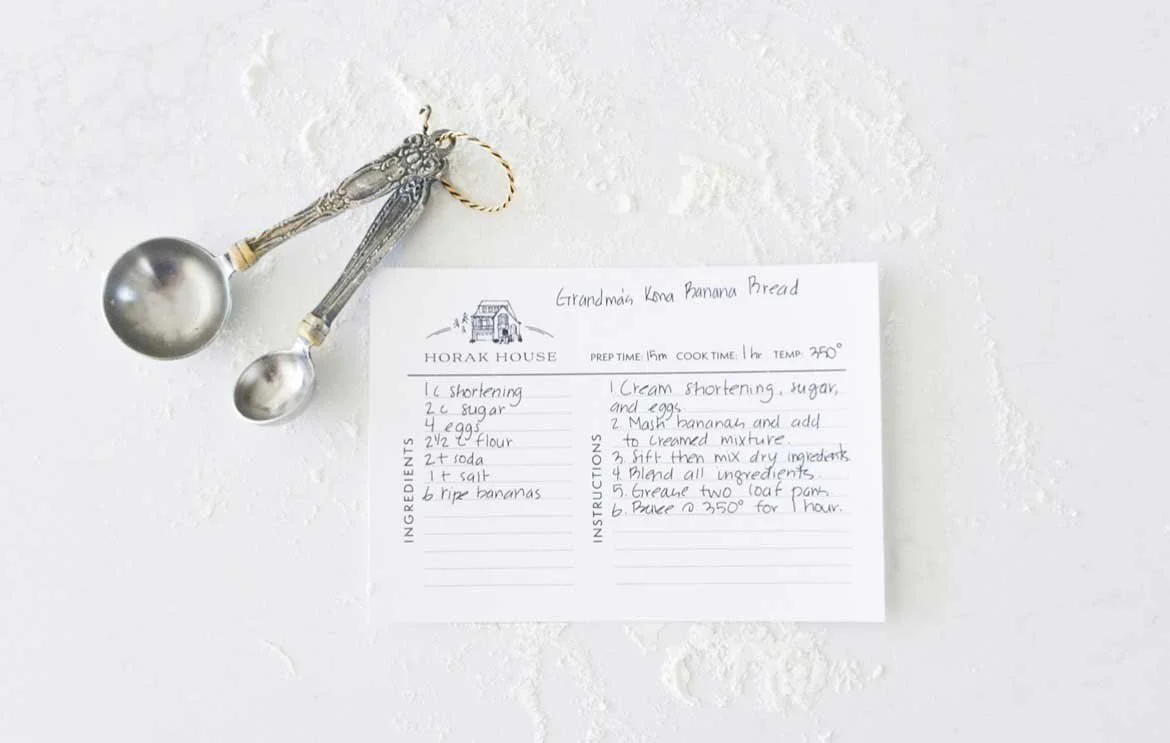 Grandma's Kona Banana Bread
HORAK HOUSE
PREP TIME: 15m COOK TIME: 1 hr TEMP: 350°
INGREDIENTS
1 c shortening
2 c sugar
4 eggs
2 1/2 c flour
2 t soda
1 t salt
6 ripe bananas
INSTRUCTIONS
1 Cream shortening, sugar,
and eggs.
2 Mash bananas and add
to creamed mixture.
3 Sift then mix dry ingredients.
4. Blend all ingredients.
5. Grease two loaf pans.
6. Bake @ 350° for 1 hour.